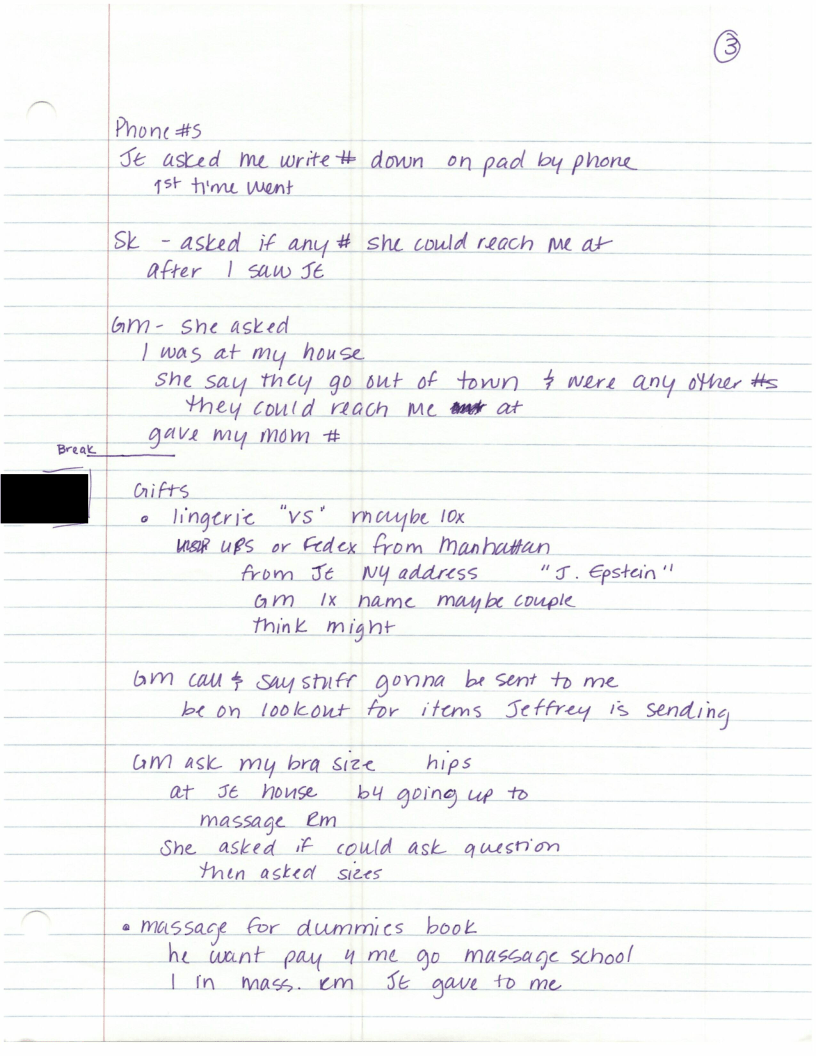 3
Phone #s
JE asked me write # down on pad by phone
1st time went
SK - asked if any # she could reach me at
after I saw JE
GM - she asked
I was at my house
she say they go out of town & were any other #s
they could reach me at
gave my mom #
Break
Gifts
• lingerie "VS" maybe 10x
UPS or Fedex from Manhattan
from JE NY address "J. Epstein"
GM 1x name maybe couple
think might
GM call & say stuff gonna be sent to me
be on lookout for items Jeffrey is sending
GM ask my bra size hips
at JE house b4 going up to
massage Rm
She asked if could ask question
then asked sizes
• massage for dummies book
he want pay 4 me go massage school
I in mass. rm JE gave to me